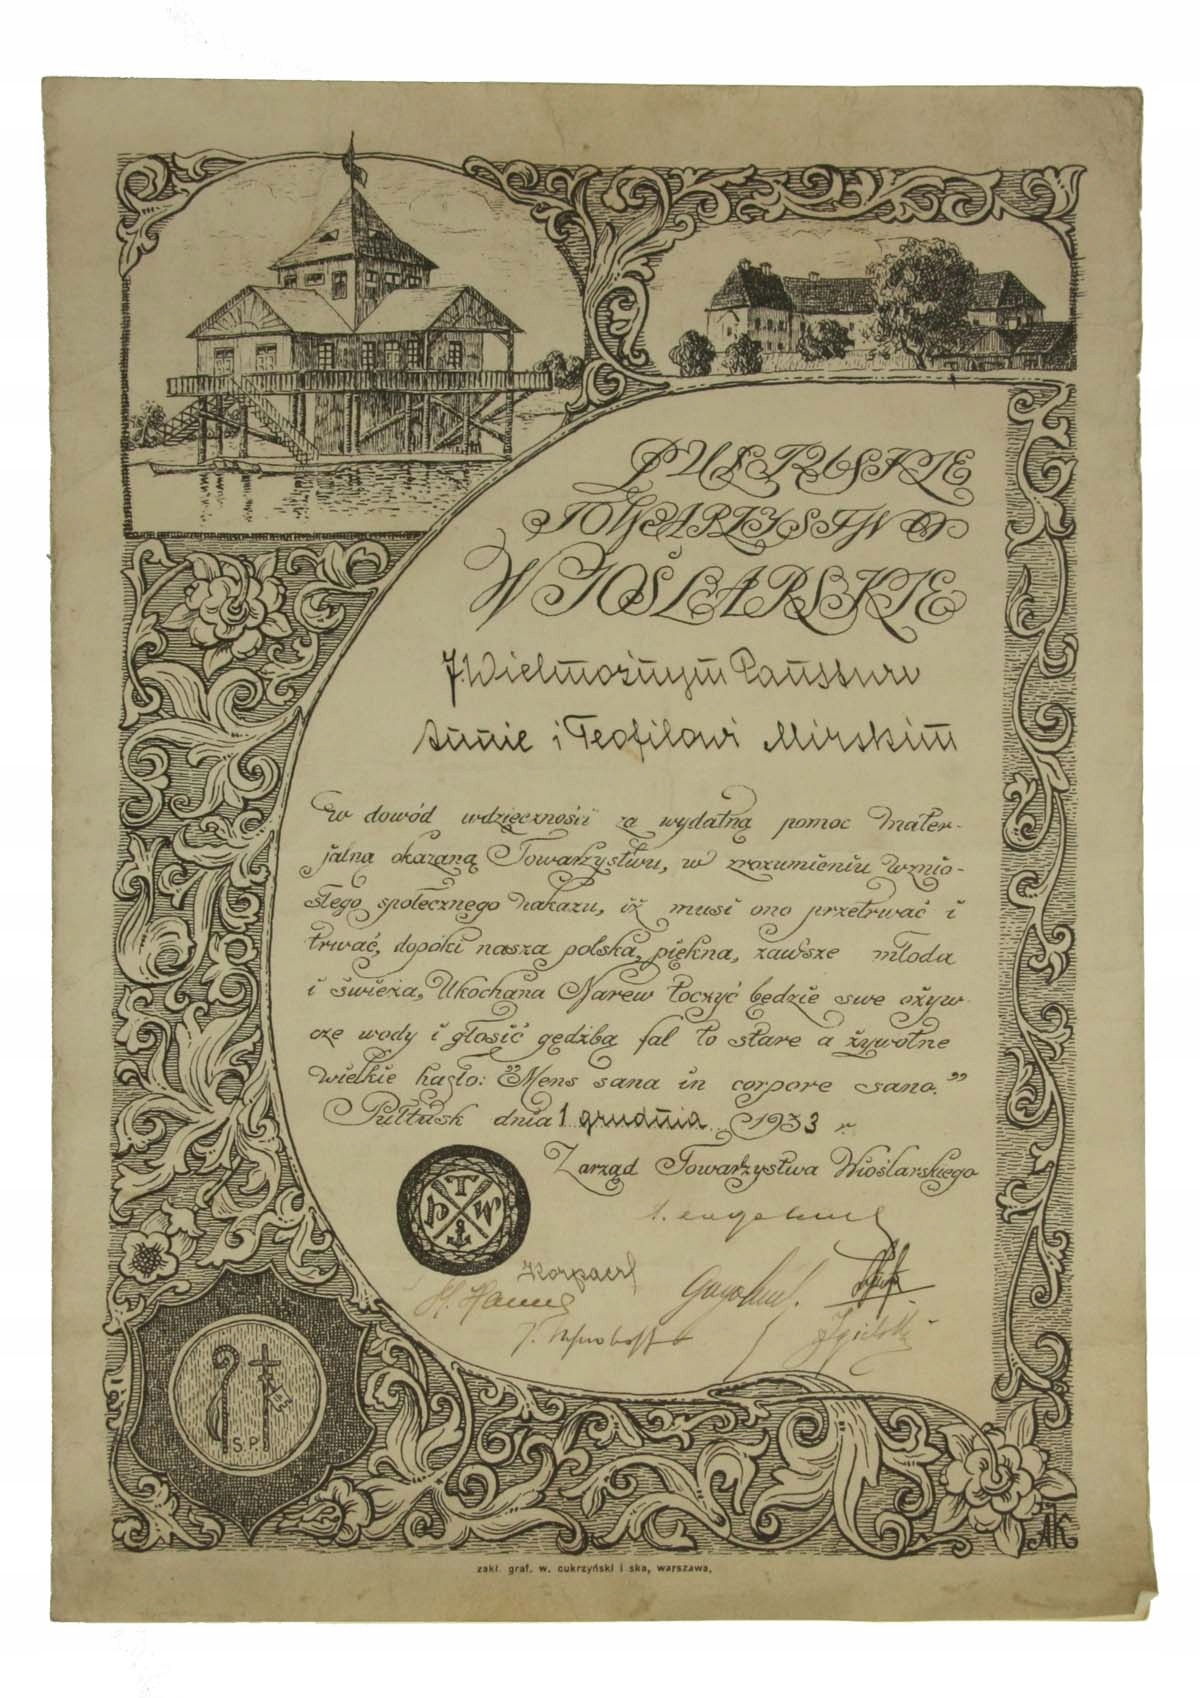 PUŁTUSKIE
TOWARZYSTWO
WIOŚLARSKIE
J.Wielmożnym Państwu
Annie i Teofilowi Mirskim
w dowód wdzięczności za wydatną pomoc mater-
jalną okazaną Towarzystwu, w zrozumieniu wznio-
słego społecznego nakazu, iż musi ono przetrwać i
trwać, dopóki nasza polska, piękna, zawsze młoda
i świeża, Ukochana Narew toczyć będzie swe ożyw-
cze wody i głosić gędźbą fal to stare a żywotne
wielkie hasło: "Mens sana in corpore sano."
Pułtusk dnia 1 grudnia 1933 r.
Zarząd Towarzystwa Wioślarskiego
P T W
S.P.
AK
zakł. graf. w. cukrzyński i ska, warszawa,